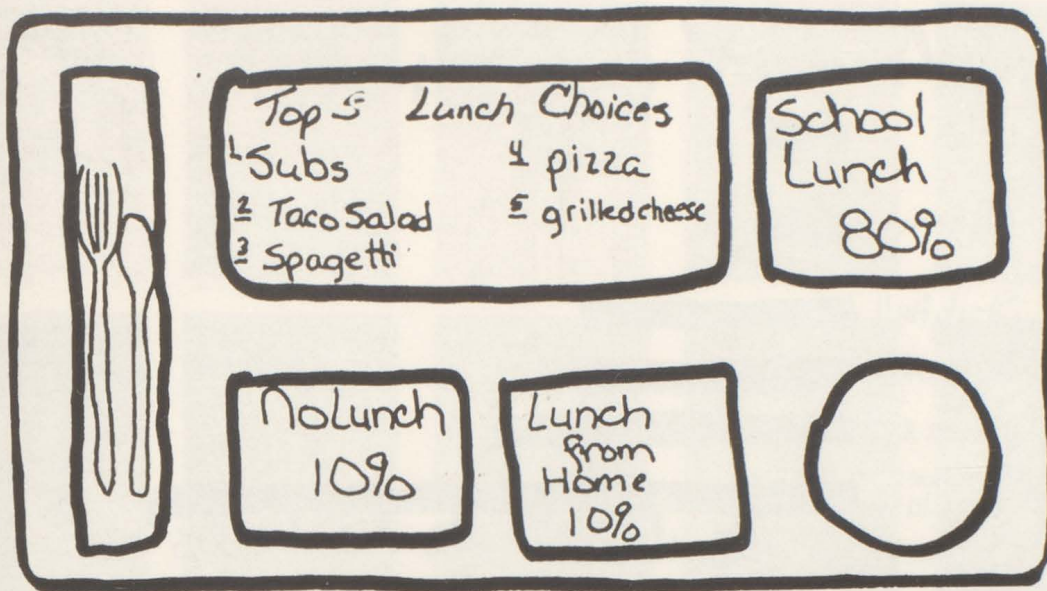 Top 5 Lunch Choices
1 Subs
2 Taco Salad
3 Spagetti
4 pizza
5 grilled cheese
School
Lunch
80%
No Lunch
10%
Lunch
from
Home
10%